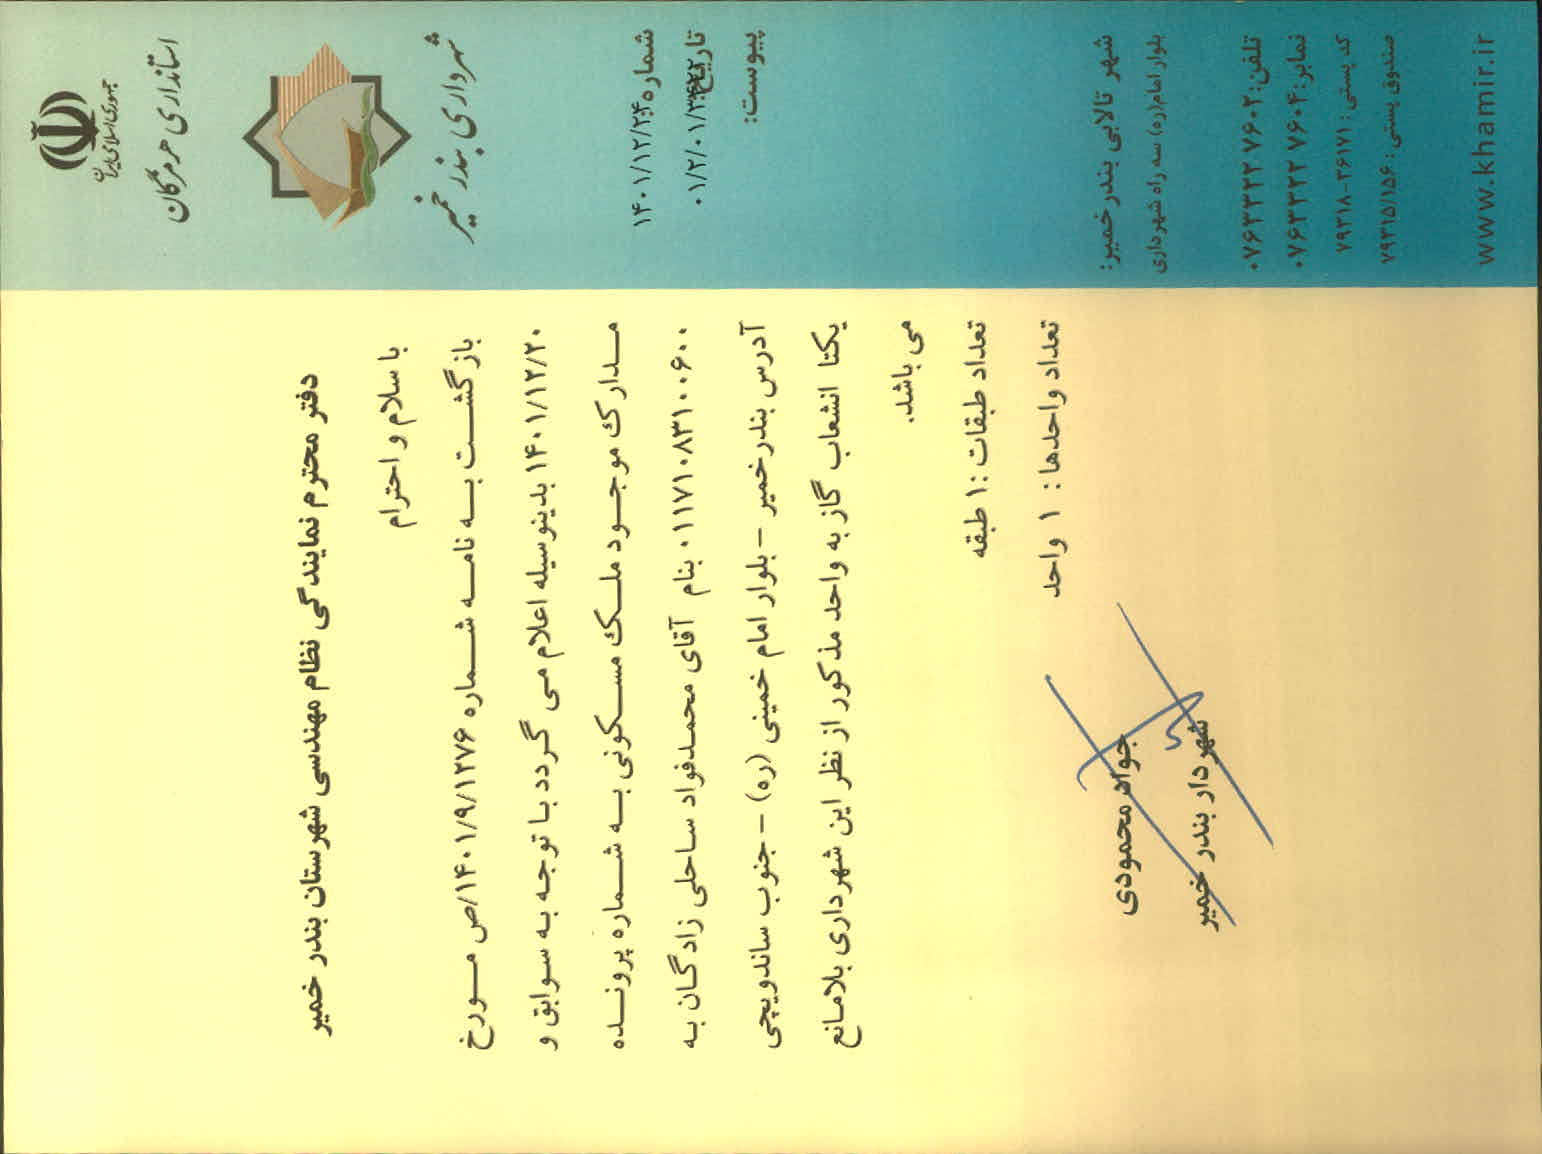 جمهوری اسلامی ایران
استانداری هرمزگان
شهرداری بندر خمیر
شماره:
تاریخ:
پیوست:
شهر تالابی بندر خمیر:
بلوار امام(ره) سه راه شهرداری
تلفن: ۰۷۶۳۳۲۲ ۷۶۰۲
نمابر: ۰۷۶۳۳۲۲ ۷۶۰۴
کد پستی: ۳۶۱۷۱-۷۹۳۱۸
صندوق پستی: ۷۹۳۱۵/۱۵۶
www.khamir.ir
دفتر محترم نمایندگی نظام مهندسی شهرستان بندر خمیر
با سلام و احترام
بازگشت به نامه شماره ۱۴۰۱/۹/۱۲۷۶/ص مورخ
۱۴۰۱/۱۲/۲۰ بدینوسیله اعلام می گردد با توجه به سوابق و
مدارک موجود ملک مسکونی به شماره پرونده
۰۱۱۷۱۰۸۳۱۰۰۶۰۰ بنام آقای محمدفواد ساحلی زادگان به
آدرس بندرخمیر – بلوار امام خمینی (ره) – جنوب ساندویچی
یکتا انشعاب گاز به واحد مذکور از نظر این شهرداری بلامانع
می باشد.
تعداد طبقات :۱ طبقه
تعداد واحدها : ۱ واحد
جواد محمودی
شهردار بندر خمیر